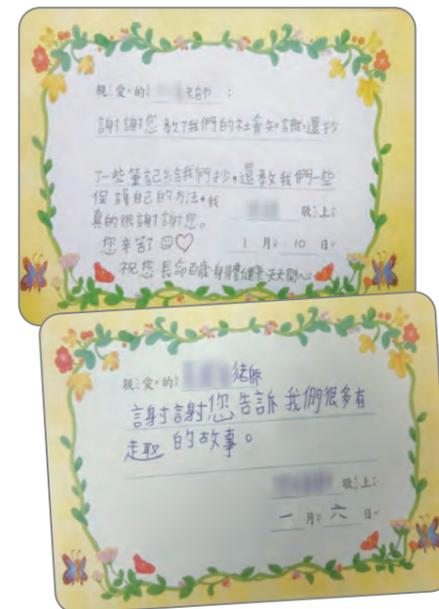 親愛的 老師：
謝謝您教了我們的社會知識，還抄
了一些筆記給我們抄。還教我們一些
保護自己的方法。我
真的很謝謝您。
敬上
您辛苦了
1 月 10 日
祝您長命百歲 身體健康 天天開心
親愛的 老師
謝謝您告訴我們很多有
趣的故事。
敬上
一 月 六 日